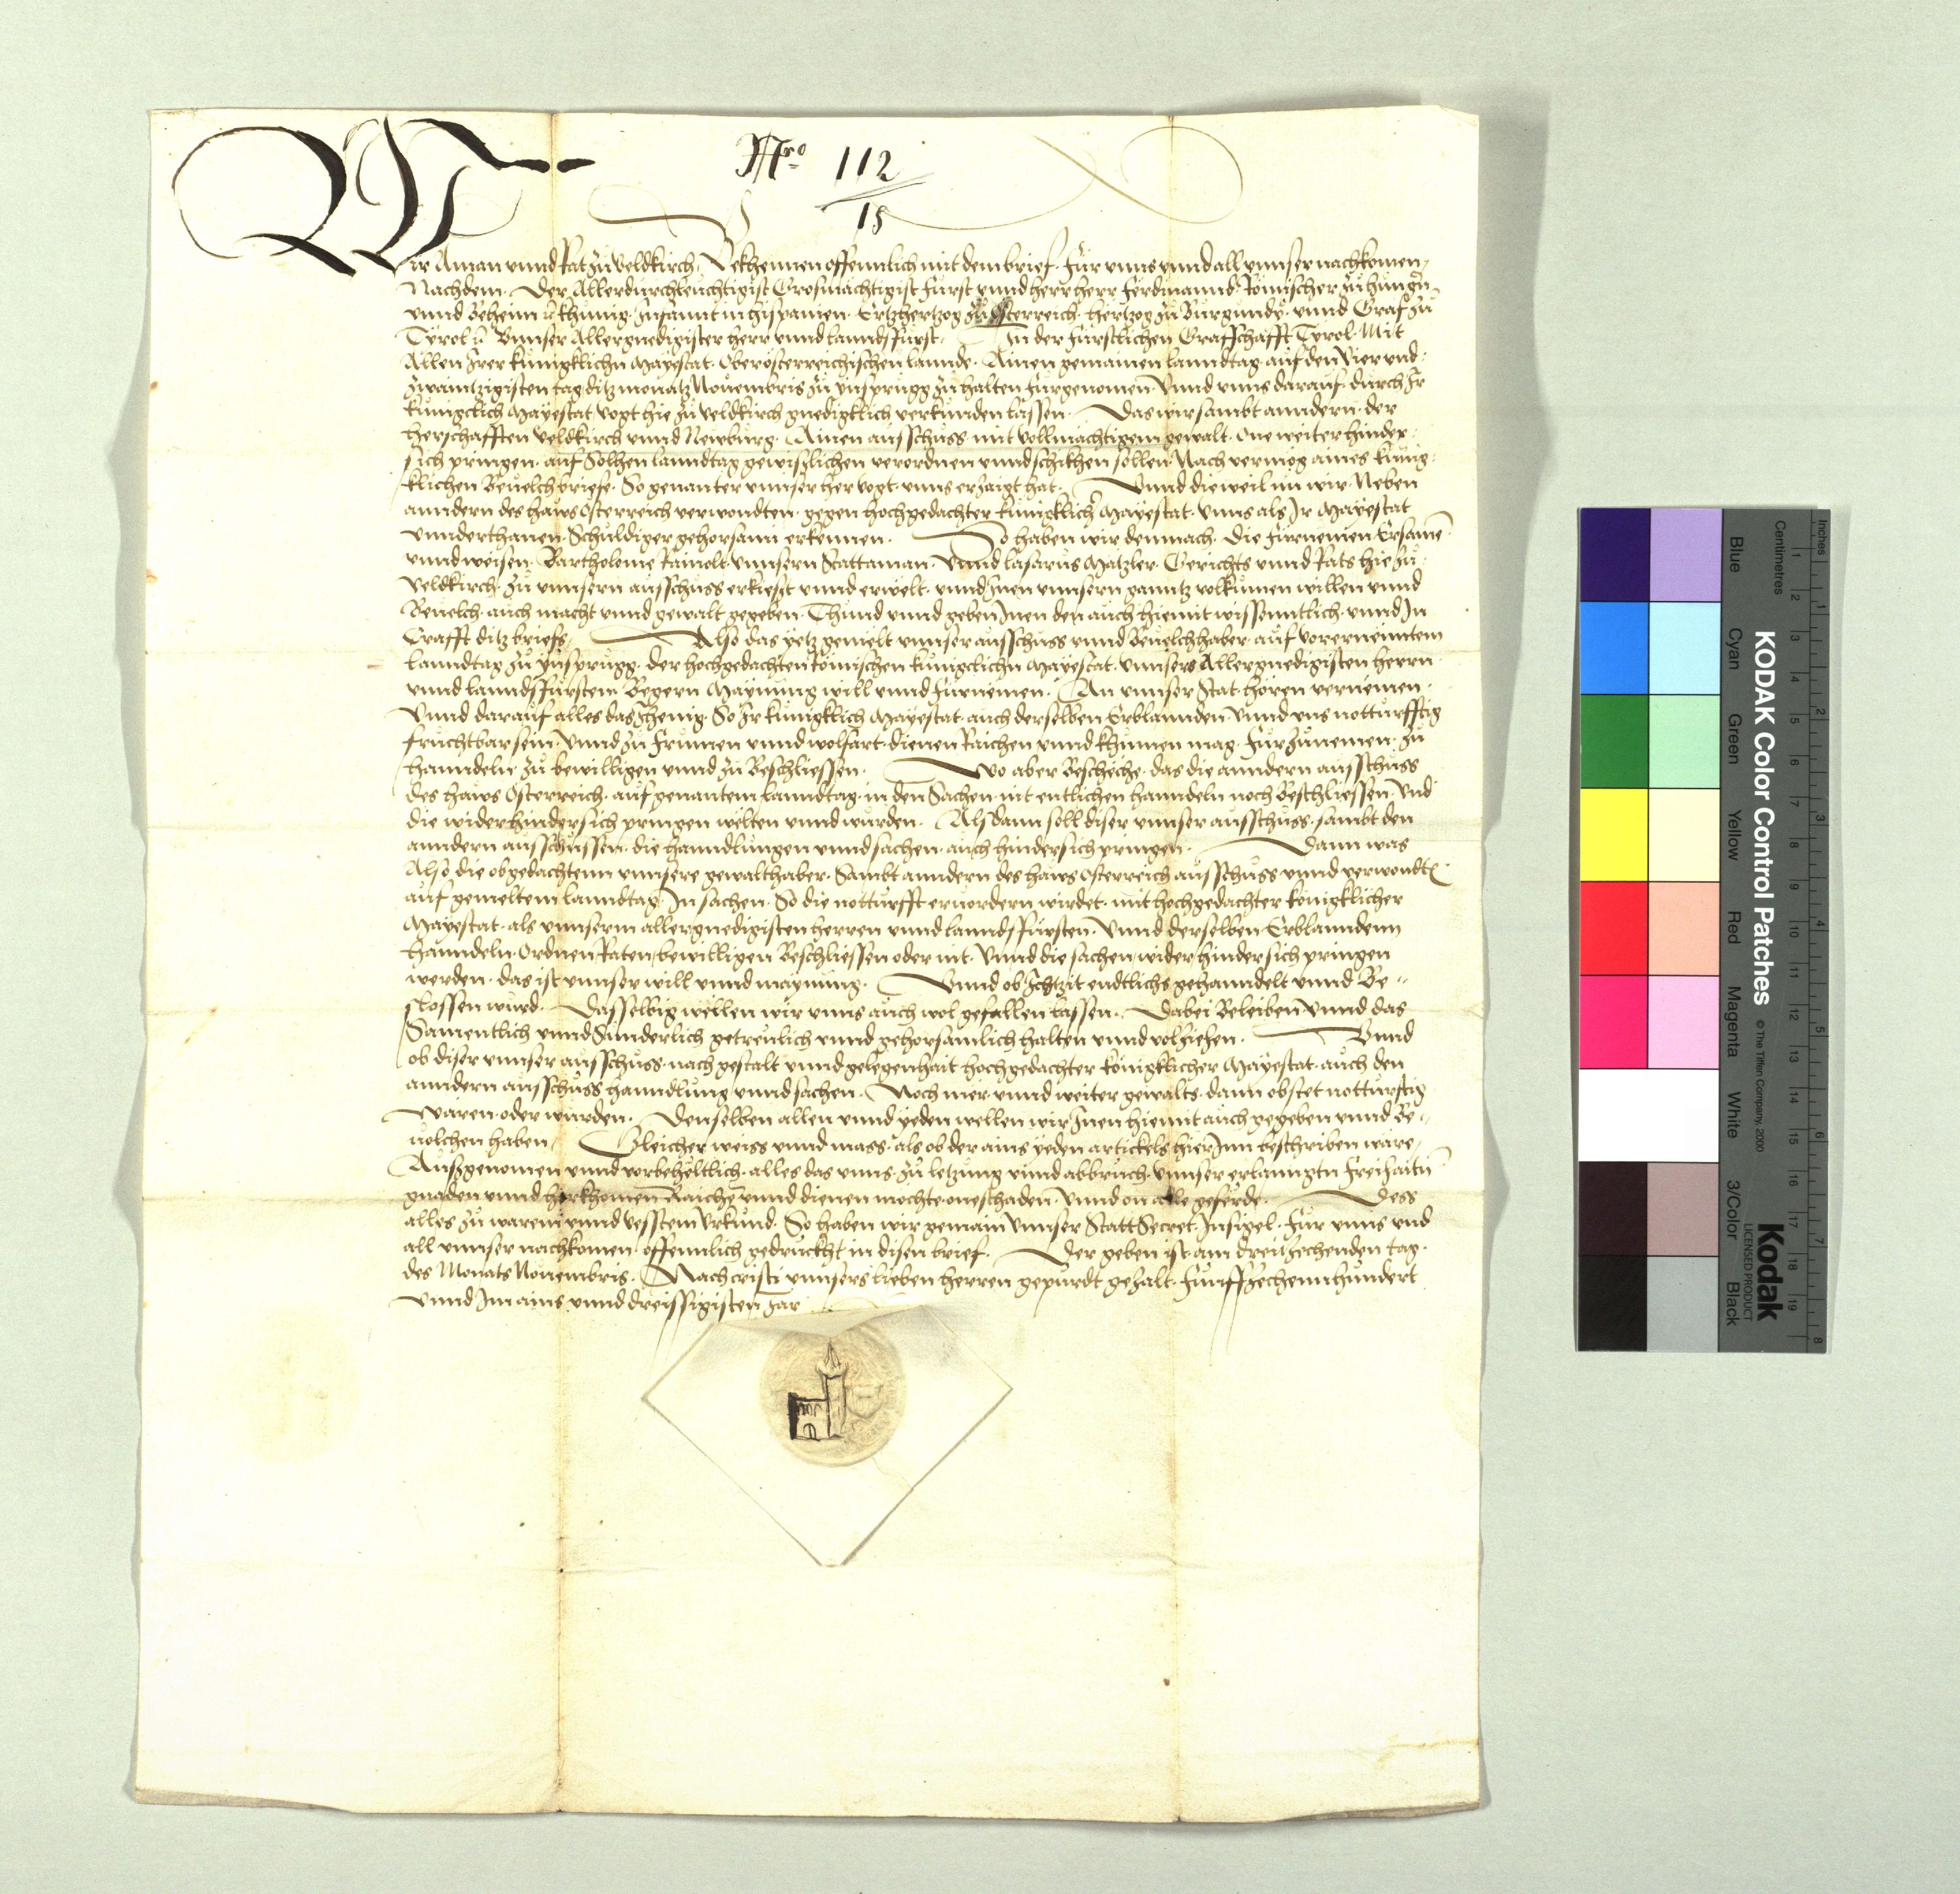 Nro 112
15
Wir Aman vnnd Rat zu Veldkirch, Bekhennen offennlich mit dem brief. Für vnns vnnd all vnnser nachkomen,
Nachdem. Der Allerdurchleuchtigist Grosmächtigist Fürst vnnd herr herr Ferdinannd. Römischer zu hungern
vnnd Behem &c khunig. Innfannt in hispanien. Ertzhertzog zu Österreich. Hertzog zu Burgundy. vnnd Graf zu
Tyrol &c Vnnser Allergnedigister herr vnnd lanndsfürst. In der fürstlichen Grafschafft Tyrol. Mit
Allen Irer künigklichn Mayestat. Oberösterreichischen lannde. Ainen gemainen lanndtag auf den vier vnd
zwaintzigisten tag ditz monatz Nouembris zu Ynsprugg zu halten fürgenomen. Vnnd vnns darauf. durch Ir
künigclich Mayestat vogt hie zu Veldkirch gnedigklich verkunden lassen. Das wir sambt anndern. der
herschafften Veldkirch vnnd Newburg. Ainen ausschuss mit vollmächtigem gewalt. One weiter hinder
sich pringen. auf Solhen lanndtag gewisslichen verordnen vnnd schikhen sollen. Nach vermög aines künig
klichen Beuelchbriefs. So genanter vnnser her vogt. vnns erzaigt hat. Vnnd dieweil nu wir. Neben
anndern des haws Osterreich verwondten. gegen hochgedachter künigklicher Mayestat. vnns als Ir Mayestat
vnnderthanen. Schuldiger gehorsam erkennen. So haben wir demnach. die fürnemen Ersamen
vnnd weisen. Bartholome Rainolt vnnsern Stattaman. Vnnd lasarus Mätzler. Gerichts vnnd Rats hie zu
Veldkirch. zu vnnserm ausschuss erkiesst vnnd erwelt. vnnd Inen vnnsern ganntz volkumen willen vnnd
Beuelch. auch macht vnnd gewalt gegeben. Thund vnnd geben Inen den auch hiemit wissenntlich. vnnd In
Crafft ditz briefs, Also das yetz gemelt vnnser ausschuss vnnd Beuelchhaber. auf vorernenntem
lanndtag zu Ynsprugg. der hochgedachten Römischen künigclichn Mayestat. vnnsers Allergnedigisten herrn
vnnd lanndsfürsten. Begern Maynung will vnnd fürnemen. An vnnser Stat. hören vernemen.
Vnnd darauf alles das Jhenig. So Ir künigklich Mayestat. auch derselben Erblannden. Vnnd vns notturfftig
fruchtbar sein. Vnnd zu frumen vnnd wolfart. dienen Raichen vnnd khumen mag. Fürzunemen. zu
hanndeln. zu bewilligen vnnd zu Beschliessen. Wo aber Beschёche. das die anndern ausschuss
des haws Osterreich. auf genantem lanndtag. in den Sachen. nit entlichen hanndeln noch Beschliessen. Vnd
die wider hindersich pringen welten vnnd wurden. Alsdann soll diser vnnser ausschuss. sambt den
anndern ausschussen. die hanndlungen vnnd sachen. auch hindersich pringen. Dann was
Also die obgedachtenn vnnsere gewalthaber. Sambt anndern des haws Osterreich ausschuss vnnd verwondten
auf gemeltem lanndtag. In sachen. So die notturfft eruordern wirdet. mit hochgedachter königklicher
Mayestat. als vnnserm allergnedigisten herren vnnd lanndsfürsten. Vnnd derselben Erblanndenn
hanndeln. Ordnen Raten, bewilligen Beschliessen oder nit. Vnnd die sachen, wider hindersich pringen
werden. das ist vnnser will vnnd maynung. Vnnd ob Ichtzit endtlichs gehanndelt vnnd Be-
slossen wurd. Dasselbig wellen wir vnns auch wol gefallen lassen. Dabei Beleiben vnnd das
Samentlich vnnd Sunderlich getreulich vnnd gehorsamlich halten vnnd volziehen. Vnnd
ob diser vnnser ausschuss. nach gestalt vnnd gelegenhait hochgedachter königklicher Mayestat. auch den
anndern ausschuss hanndlung vnnd sachen. Noch mer vnnd weiter gewalts. dann obstet notturftig
wären. oder wurden. Denselben allen vnnd yeden wellen wir Inen hiemit auch gegeben vnnd Be-
uolchen haben, Gleicher weiss vnnd mass. als ob der ains yeden artickels hierInn beschriben ware,
Aussgenomen vnnd vorbeheltlich. alles das vnns. zu letzung vnnd abbruch. vnnser erlanngtn Freihaitn
gnaden vnnd herkhomen Raichen vnnd dienen mochte. one schaden. Vnnd on alle geferde. Dess
alles zu warem vnnd vesstem Vrkund. So haben wir gemain Vnnser Statt Secret. Insigel. Für vnns vnd
all vnnser nachkomen. offennlich gedruckht in disen brief. Der geben ist. am dreuzechenden tag.
des Monats Nouembris. Nach cristi vnnsers lieben herren gepurdt gezalt. Fünffzechennhundert
vnnd Im ains vnnd dreissigisten Jar
KODAK Color Control Patches
© The Tiffen Company, 2000
Kodak
LICENSED PRODUCT
Inches
Centimetres
Blue Cyan Green Yellow Red Magenta White 3/Color Black
1 2 3 4 5 6 7 8 9 10 11 12 13 14 15 16 17 18 19
1 2 3 4 5 6 7 8